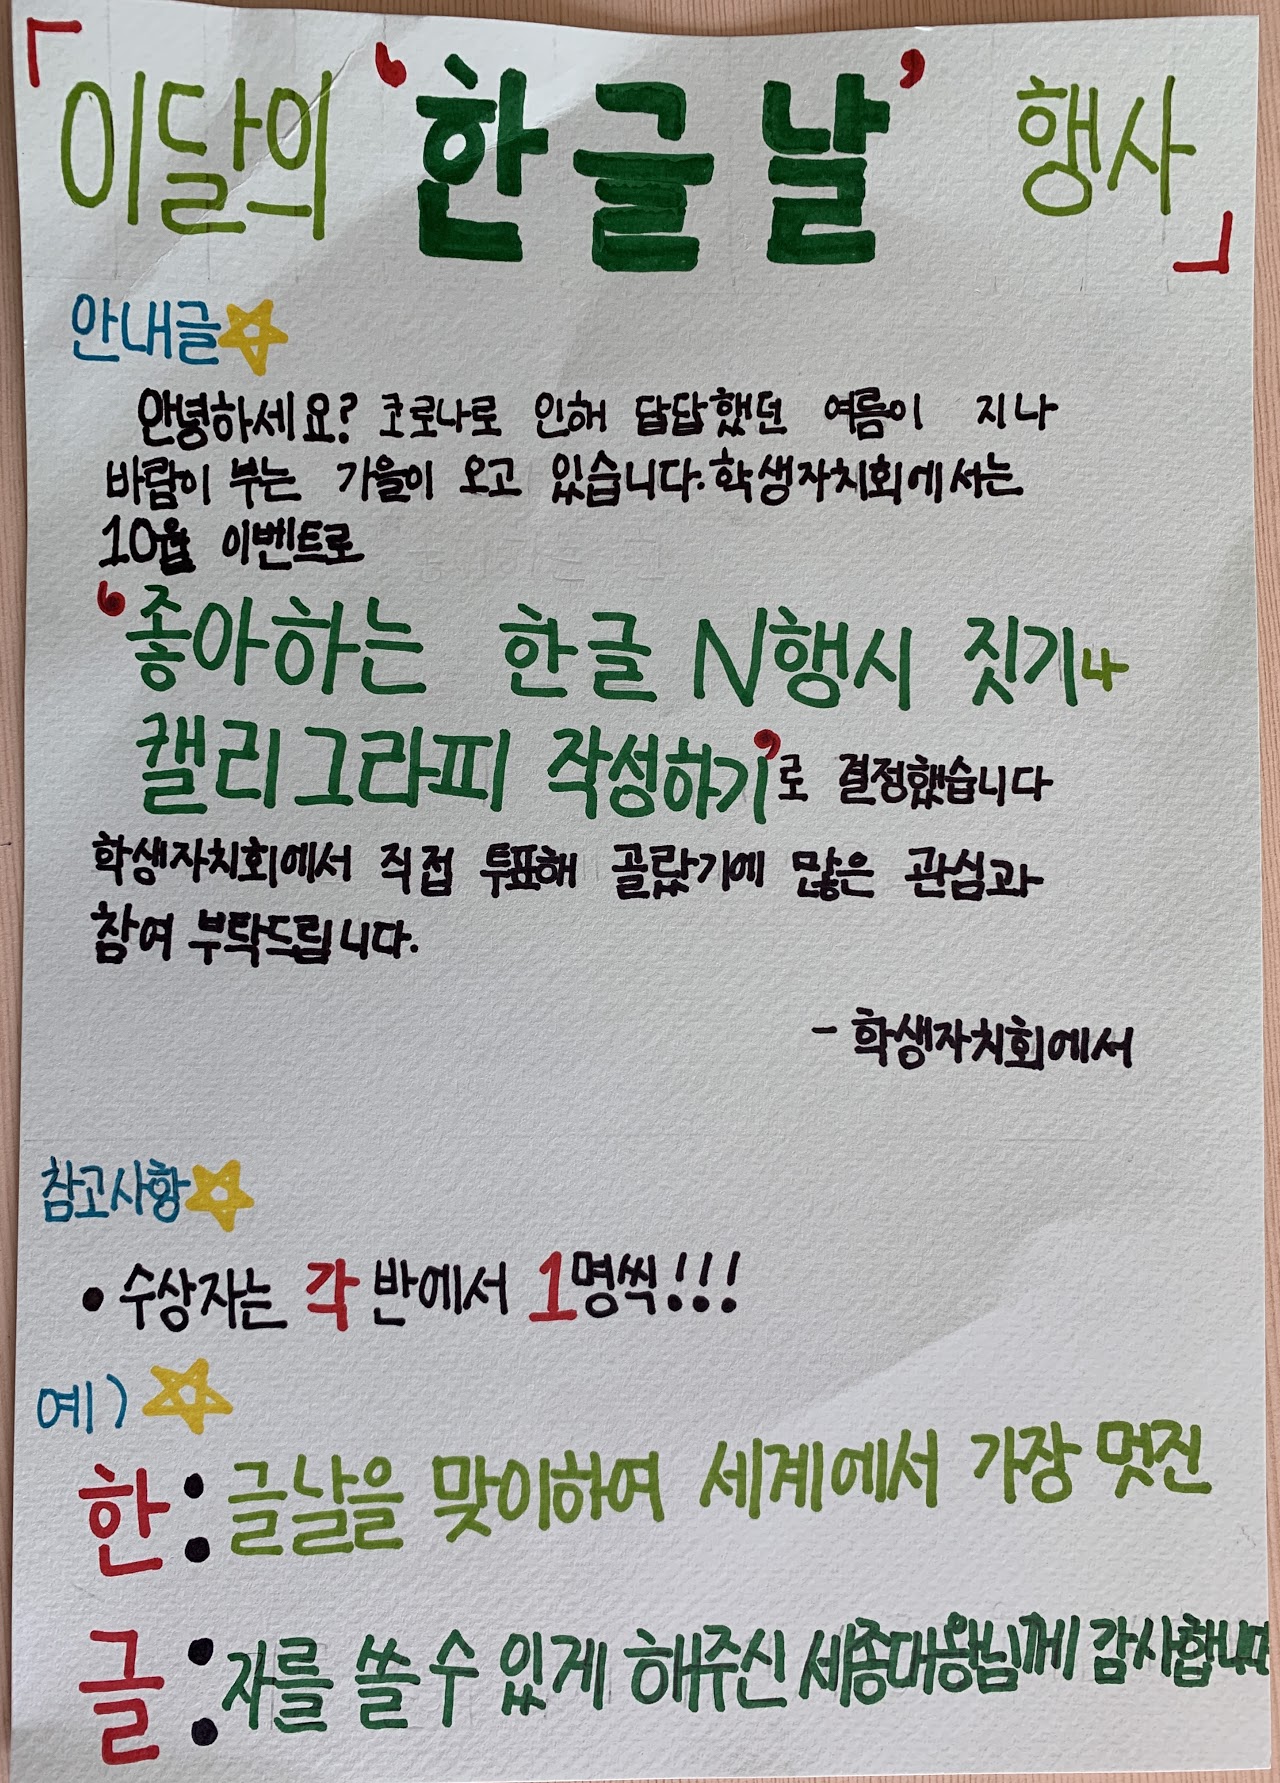 「이달의 '한글날' 행사」
안내글
안녕하세요? 코로나로 인해 답답했던 여름이 지나
바람이 부는 가을이 오고 있습니다. 학생자치회에서는
10월 이벤트로
'좋아하는 한글 N행시 짓기나
캘리그라피 작성하기'로 결정했습니다
학생자치회에서 직접 투표해 골랐기에 많은 관심과
참여 부탁드립니다.
- 학생자치회에서
참고사항
• 수상자는 각 반에서 1명씩!!!
예)
한: 글날을 맞이하여 세계에서 가장 멋진
글: 자를 쓸 수 있게 해주신 세종대왕님께 감사합니다